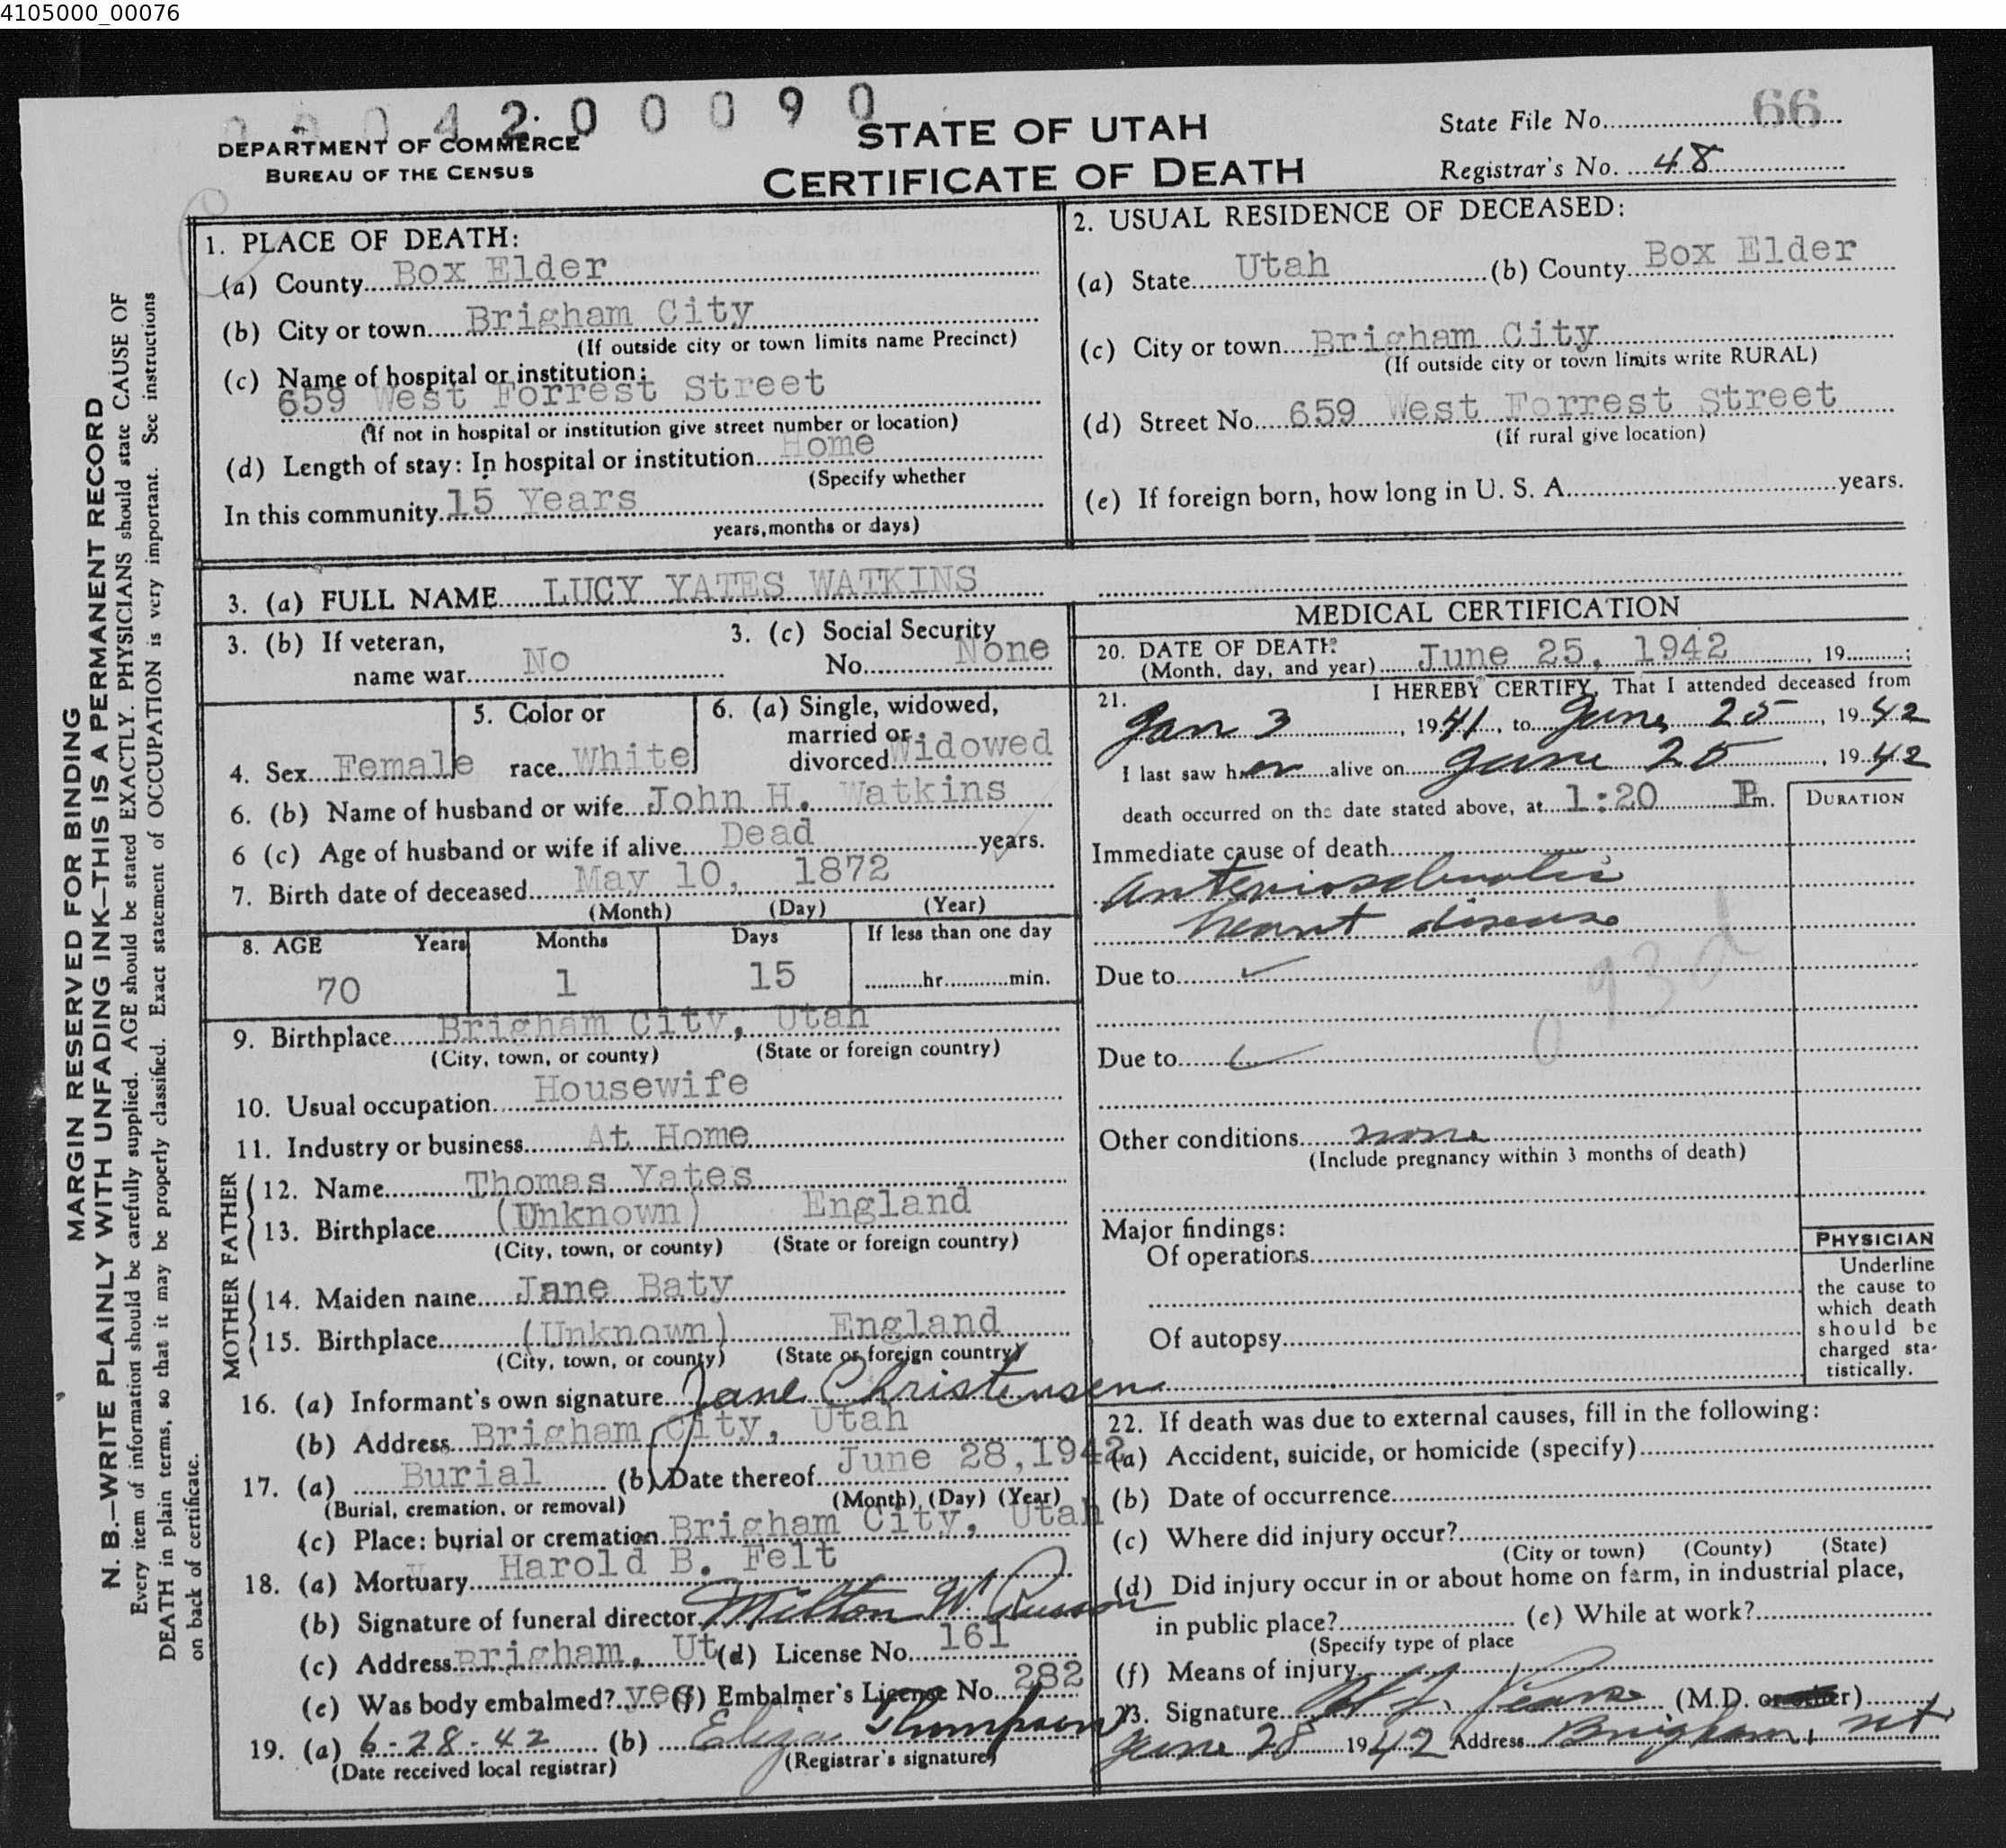 4105000_00076
0 0 0 4 2 0 0 0 9 0
DEPARTMENT OF COMMERCE
BUREAU OF THE CENSUS
STATE OF UTAH
CERTIFICATE OF DEATH
State File No. 66
Registrar's No. 48
MARGIN RESERVED FOR BINDING
N. B.—WRITE PLAINLY WITH UNFADING INK—THIS IS A PERMANENT RECORD
Every item of information should be carefully supplied. AGE should be stated EXACTLY. PHYSICIANS should state CAUSE OF
DEATH in plain terms, so that it may be properly classified. Exact statement of OCCUPATION is very important. See instructions
on back of certificate.
1. PLACE OF DEATH:
(a) County Box Elder
(b) City or town Brigham City
(If outside city or town limits name Precinct)
(c) Name of hospital or institution:
659 West Forrest Street
(If not in hospital or institution give street number or location)
(d) Length of stay: In hospital or institution Home
(Specify whether
In this community 15 Years
years, months or days)
2. USUAL RESIDENCE OF DECEASED:
(a) State Utah (b) County Box Elder
(c) City or town Brigham City
(If outside city or town limits write RURAL)
(d) Street No. 659 West Forrest Street
(If rural give location)
(e) If foreign born, how long in U. S. A. years.
3. (a) FULL NAME LUCY YATES WATKINS
3. (b) If veteran,
name war No
3. (c) Social Security
No. None
4. Sex Female
5. Color or
race White
6. (a) Single, widowed,
married or
divorced Widowed
6. (b) Name of husband or wife John H. Watkins
6 (c) Age of husband or wife if alive Dead years.
7. Birth date of deceased May 10, 1872
(Month) (Day) (Year)
8. AGE Years Months Days If less than one day
70 1 15 hr. min.
9. Birthplace Brigham City, Utah
(City, town, or county) (State or foreign country)
10. Usual occupation Housewife
11. Industry or business At Home
FATHER
12. Name Thomas Yates
13. Birthplace (Unknown) England
(City, town, or county) (State or foreign country)
MOTHER
14. Maiden name Jane Baty
15. Birthplace (Unknown) England
(City, town, or county) (State or foreign country)
16. (a) Informant's own signature Jane Christensen
(b) Address Brigham City, Utah
17. (a) Burial (b) Date thereof June 28,1942
(Burial, cremation, or removal) (Month) (Day) (Year)
(c) Place: burial or cremation Brigham City, Utah
18. (a) Mortuary Harold B. Felt
(b) Signature of funeral director Milton W. Russon
(c) Address Brigham, Ut (d) License No. 161
(e) Was body embalmed? yes (f) Embalmer's License No. 282
19. (a) 6-28-42 (b) Eliza Thompson
(Date received local registrar) (Registrar's signature)
MEDICAL CERTIFICATION
20. DATE OF DEATH:
(Month, day, and year) June 25, 1942, 19 ;
21. I HEREBY CERTIFY, That I attended deceased from
Jan 3, 1941, to June 25, 1942
I last saw her alive on June 25, 1942
death occurred on the date stated above, at 1:20 Pm.
DURATION
Immediate cause of death
Arteriosclerotic
heart disease
Due to ✓
93d
Due to ✓
Other conditions none
(Include pregnancy within 3 months of death)
Major findings:
Of operations
Of autopsy
PHYSICIAN
Underline
the cause to
which death
should be
charged sta-
tistically.
22. If death was due to external causes, fill in the following:
(a) Accident, suicide, or homicide (specify)
(b) Date of occurrence
(c) Where did injury occur?
(City or town) (County) (State)
(d) Did injury occur in or about home on farm, in industrial place,
in public place? (e) While at work?
(Specify type of place
(f) Means of injury
23. Signature (M.D. or other)
June 28 1942 Address Brigham, Ut